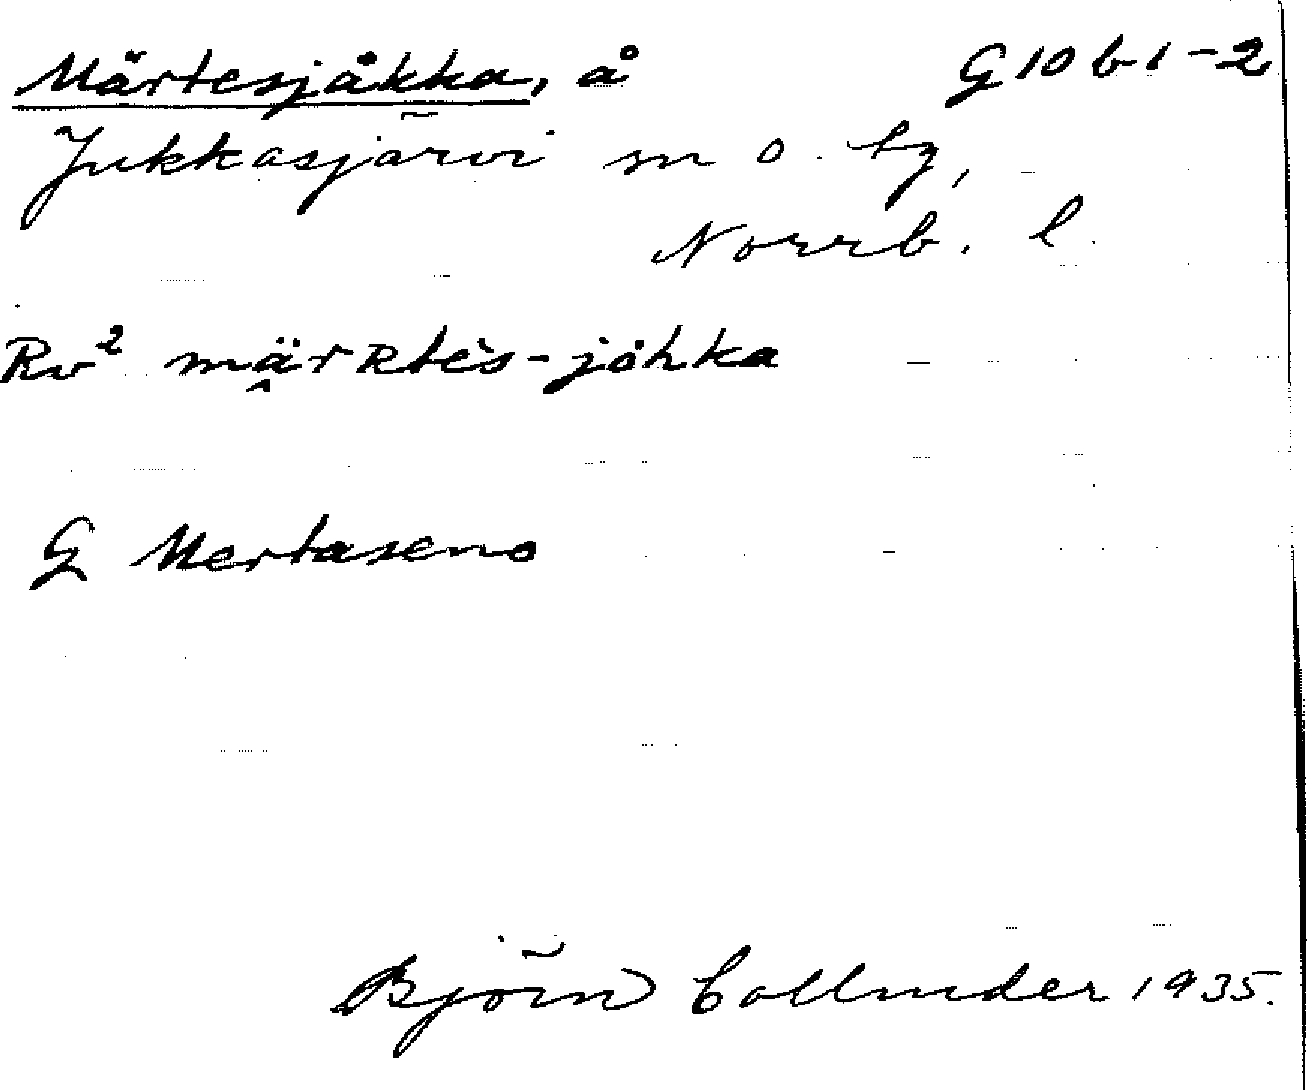 Märtesjåkka, å G10b1-2
Jukkasjärvi sn o. tg,
Norrb. l.
Rv² mä̭rRtès-jåhka
G Mertaseno
Björn Collinder 1935.